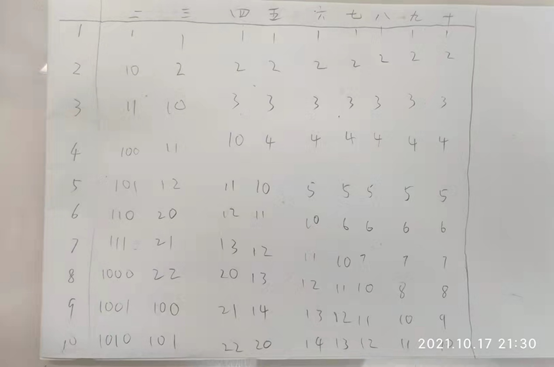 二 三 四 五 六 七 八 九 十
1 1 1 1 1 1 1 1 1 1
2 10 2 2 2 2 2 2 2 2
3 11 10 3 3 3 3 3 3 3
4 100 11 10 4 4 4 4 4 4
5 101 12 11 10 5 5 5 5 5
6 110 20 12 11 10 6 6 6 6
7 111 21 13 12 11 10 7 7 7
8 1000 22 20 13 12 11 10 8 8
9 1001 100 21 14 13 12 11 10 9
10 1010 101 22 20 14 13 12 11
2021.10.17 21:30